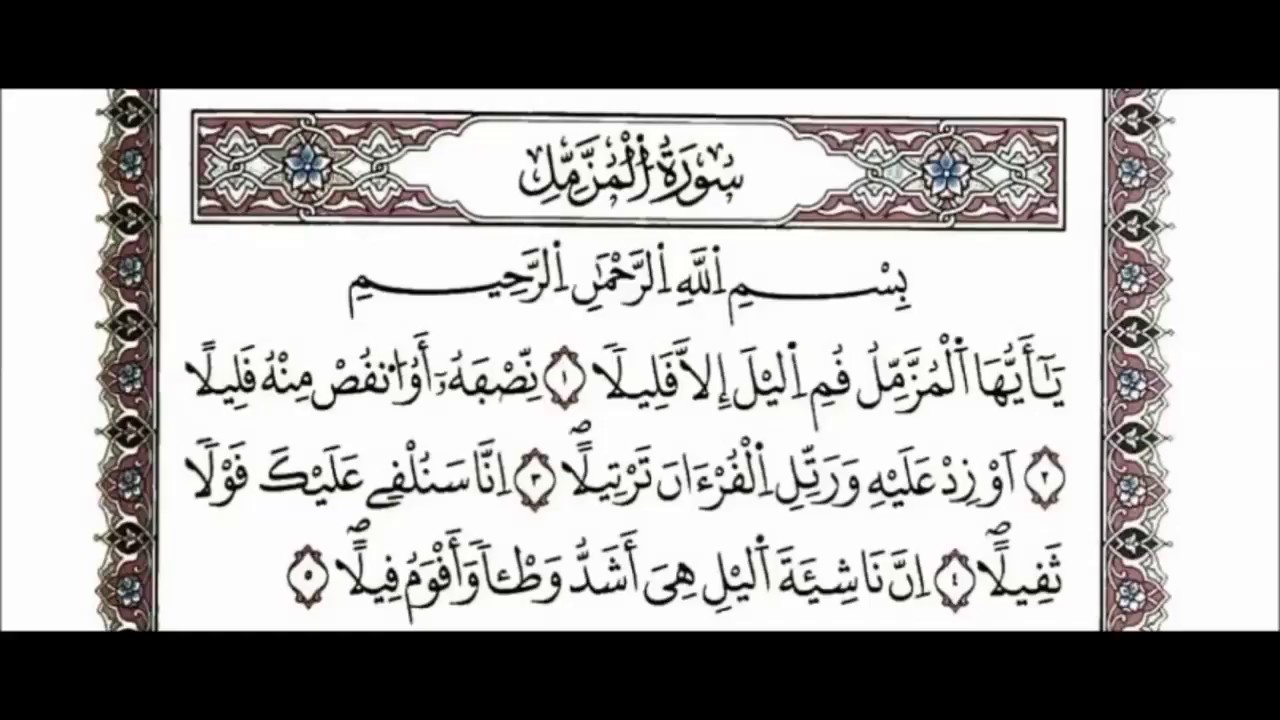 سُورَةُ اَ۬لْمُزَّمِّلِ
بِسْمِ اِ۬للَّهِ اِ۬لرَّحْمَٰنِ اِ۬لرَّحِيمِ
يَٰٓأَيُّهَا اَ۬لْمُزَّمِّلُ قُمِ اِ۬ليْلَ إِلَّا قَلِيلاٗ ١ نِّصْفَهُۥٓ أَوُ اُ۟نقُصْ مِنْهُ قَلِيلاً
٢ اَوْ زِدْ عَلَيْهِ وَرَتِّلِ اِ۬لْقُرْءَانَ تَرْتِيلاًۖ ٣ اِنَّا سَنُلْقِے عَلَيْكَ قَوْلاٗ
ثَقِيلاًۖ ٤ اِنَّ نَاشِئَةَ اَ۬ليْلِ هِيَ أَشَدُّ وَطْـٔاٗ وَأَقْوَمُ قِيلاًۖ ٥